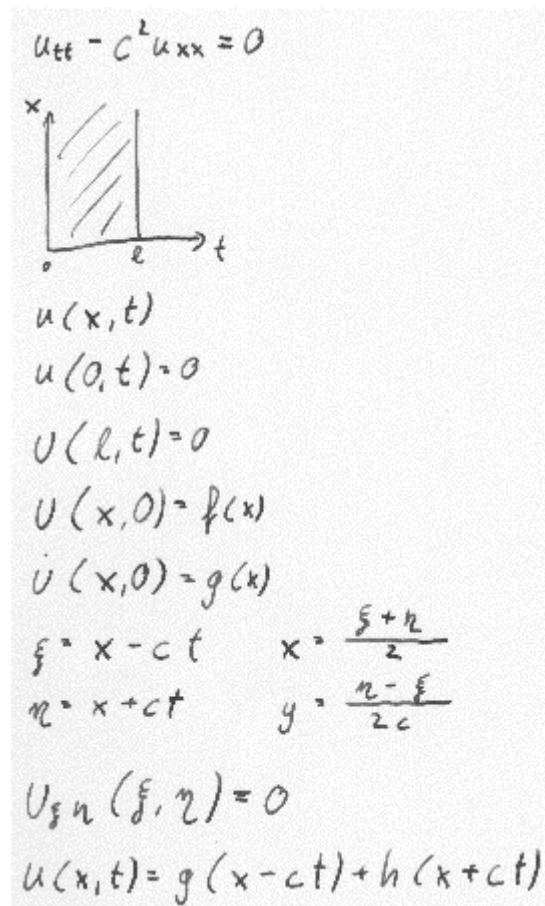 u_tt - c² u_xx = 0
x
0 l t
u(x,t)
u(0,t)=0
U(l,t)=0
U(x,0)=f(x)
U̇(x,0)=g(x)
ξ = x - ct x = (ξ+η)/2
η = x + ct y = (η-ξ)/2c
U_ξη(ξ,η)=0
u(x,t)= g(x-ct)+h(x+ct)